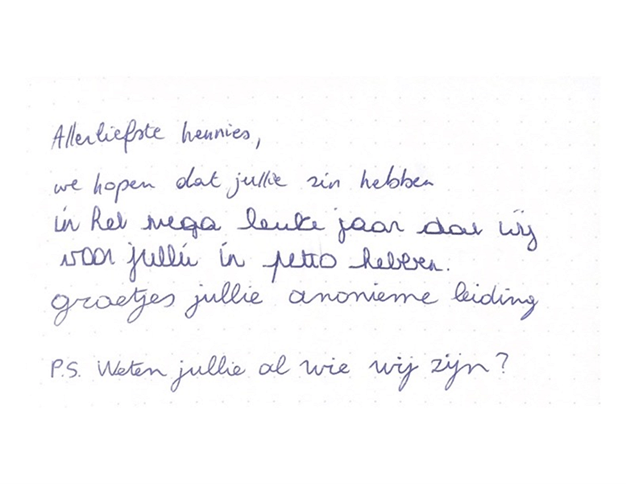 Allerliefste hennies,
we hopen dat jullie zin hebben
in het mega leuke jaar dat wij
voor jullie in petto hebben.
groetjes jullie anonieme leiding
P.S. Weten jullie al wie wij zijn?